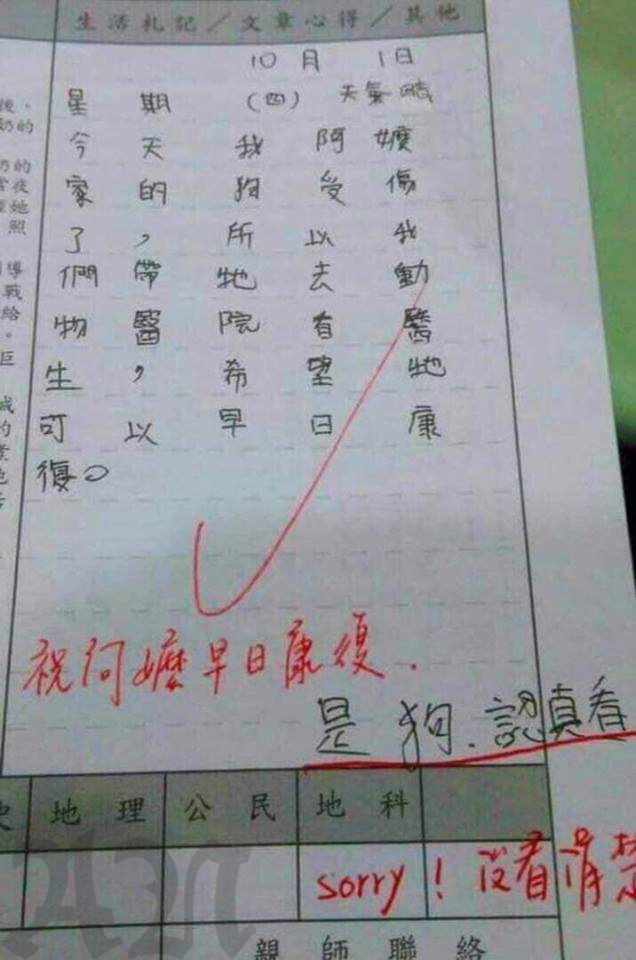 生活札記／文章心得／其他
10月 1日
星期(四) 天氣
今天我阿嬤
家的狗受傷
了，所以我
們帶牠去動
物醫院有醫
生，希望牠
可以早日康
復。
祝阿嬤早日康復.
是狗.認真看
地理 公民 地科
sorry！沒看清楚
親師聯絡
後。
奶的
奶的
當夜
她
照
導
戰
給
。
巨
的